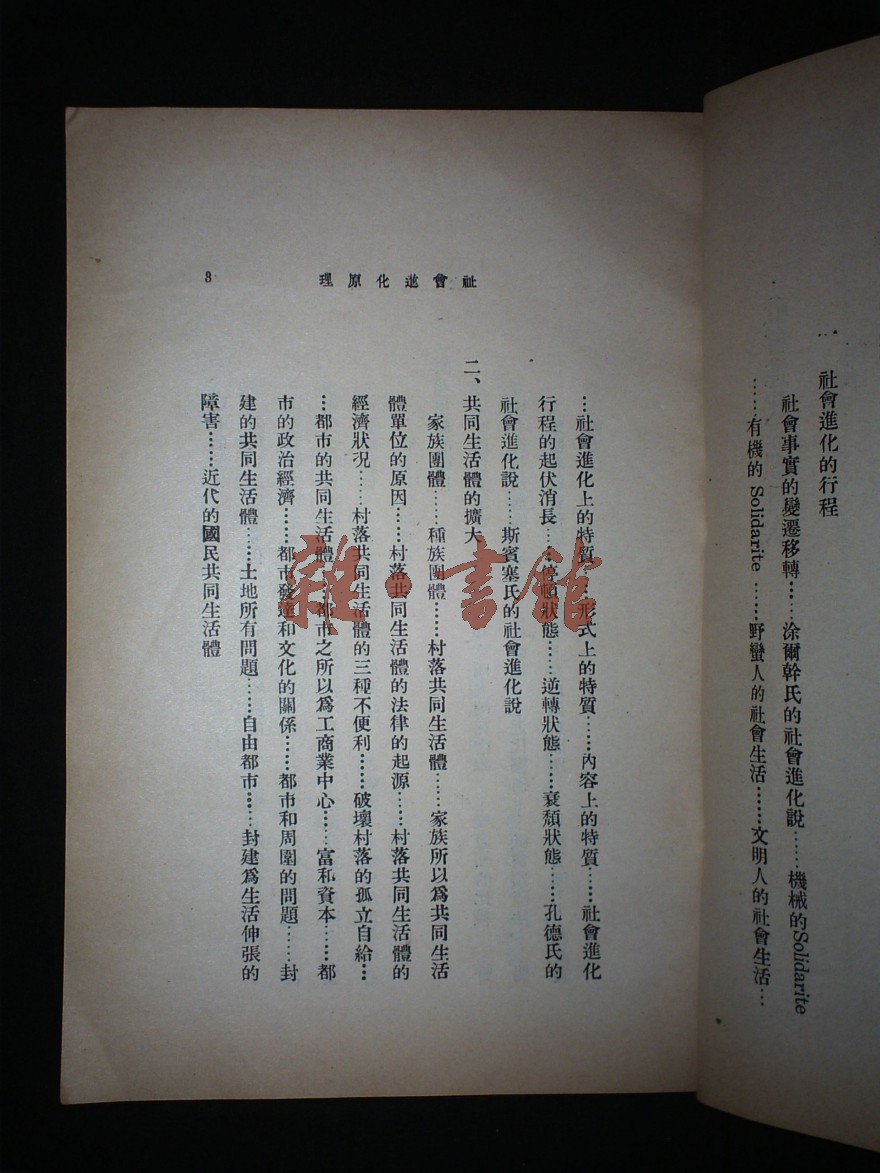 社會進化的行程
社會事實的變遷移轉……涂爾幹氏的社會進化說……機械的Solidarite
……有機的 Solidarite ……野蠻人的社會生活……文明人的社會生活…
社會進化原理
3
…社會進化上的特質……形式上的特質……內容上的特質……社會進化
行程的起伏消長……停頓狀態……逆轉狀態……衰頹狀態……孔德氏的
社會進化說……斯賓塞氏的社會進化說
二、共同生活體的擴大
家族團體……種族團體……村落共同生活體……家族所以爲共同生活
體單位的原因……村落共同生活體的法律的起源……村落共同生活體的
經濟狀況……村落共同生活體的三種不便利……破壞村落的孤立自給…
…都市的共同生活體……都市之所以爲工商業中心……富和資本……都
市的政治經濟……都市發達和文化的關係……都市和周圍的問題……封
建的共同生活體……土地所有問題……自由都市……封建爲生活伸張的
障害……近代的國民共同生活體
雜·書館